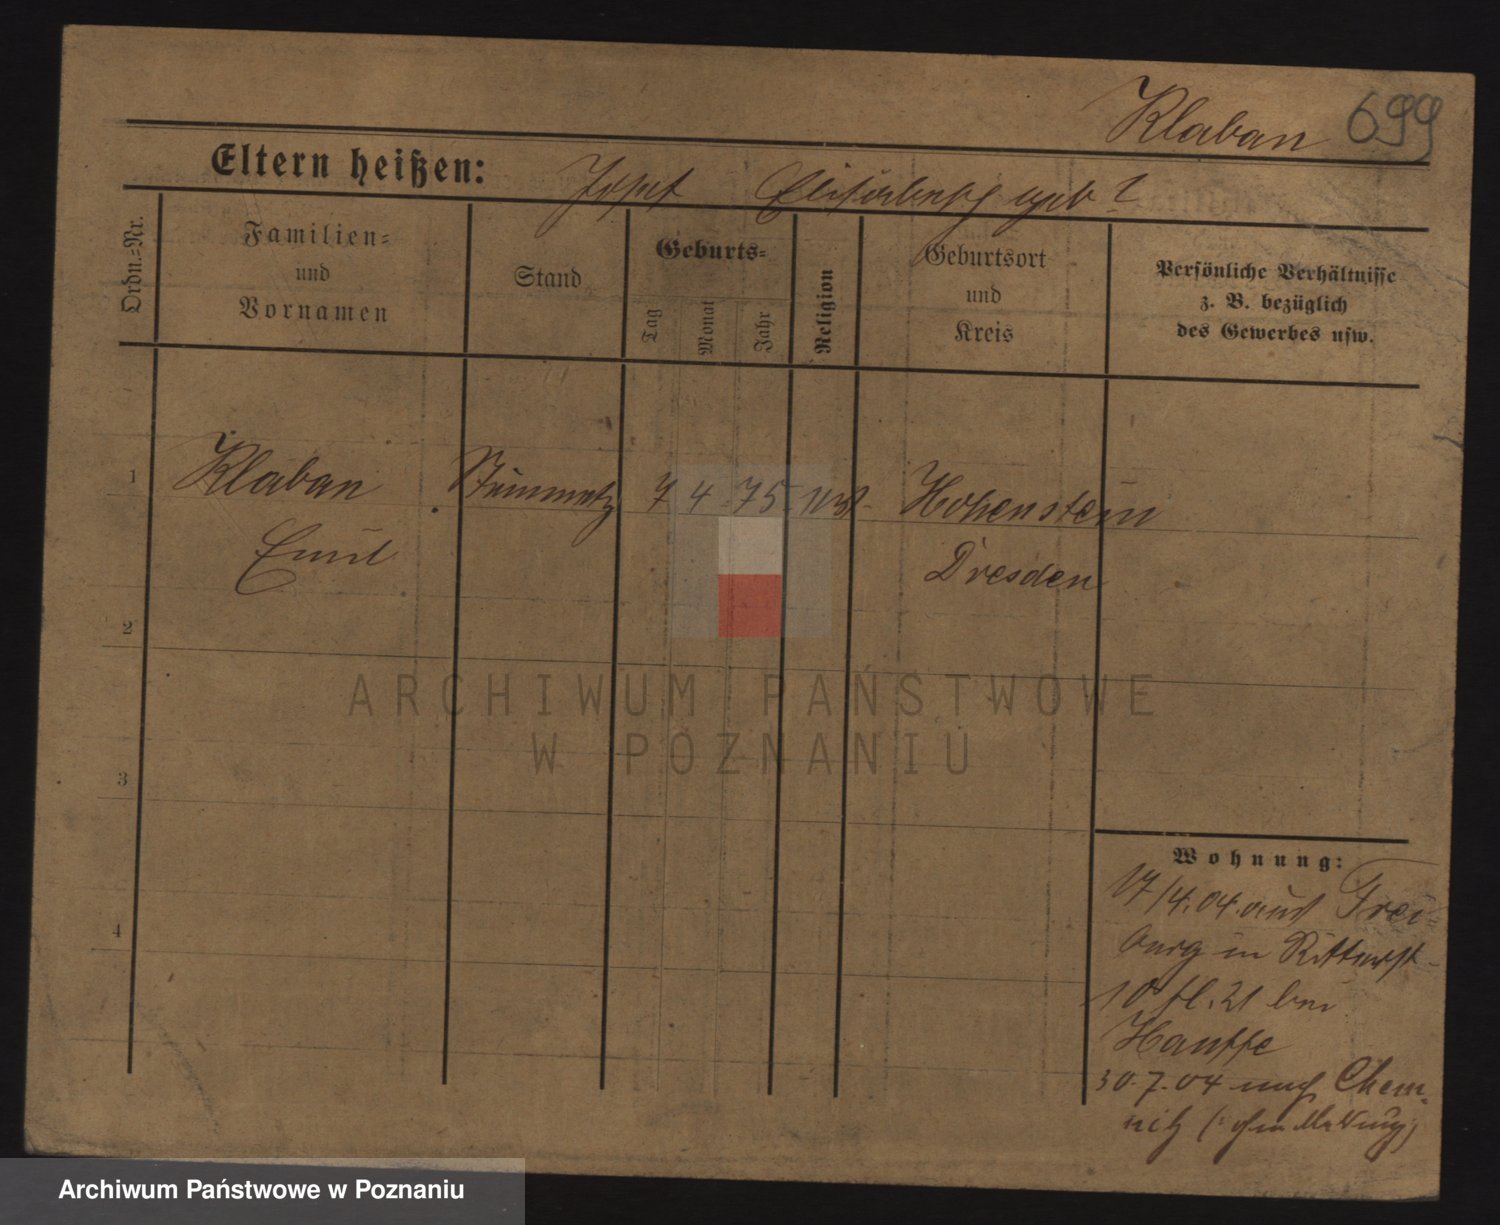 Klaban 699
Eltern heißen: Josef Elisabeth geb ?
Ordn.=Nr.
Familien=
und
Vornamen
Stand
Geburts=
Tag
Monat
Jahr
Religion
Geburtsort
und
Kreis
Persönliche Verhältnisse
z. B. bezüglich
des Gewerbes usw.
1 Klaban Steinmetz 7 4 75 Hohenstein
Emil Dresden
2
3
4
ARCHIWUM PAŃSTWOWE
W POZNANIU
Wohnung:
17/4.04. aus Frei-
burg in Ritterst-
10 bei
Hauffe
30.7.04 nach Chem-
nitz (: ohne Meldung)
Archiwum Państwowe w Poznaniu